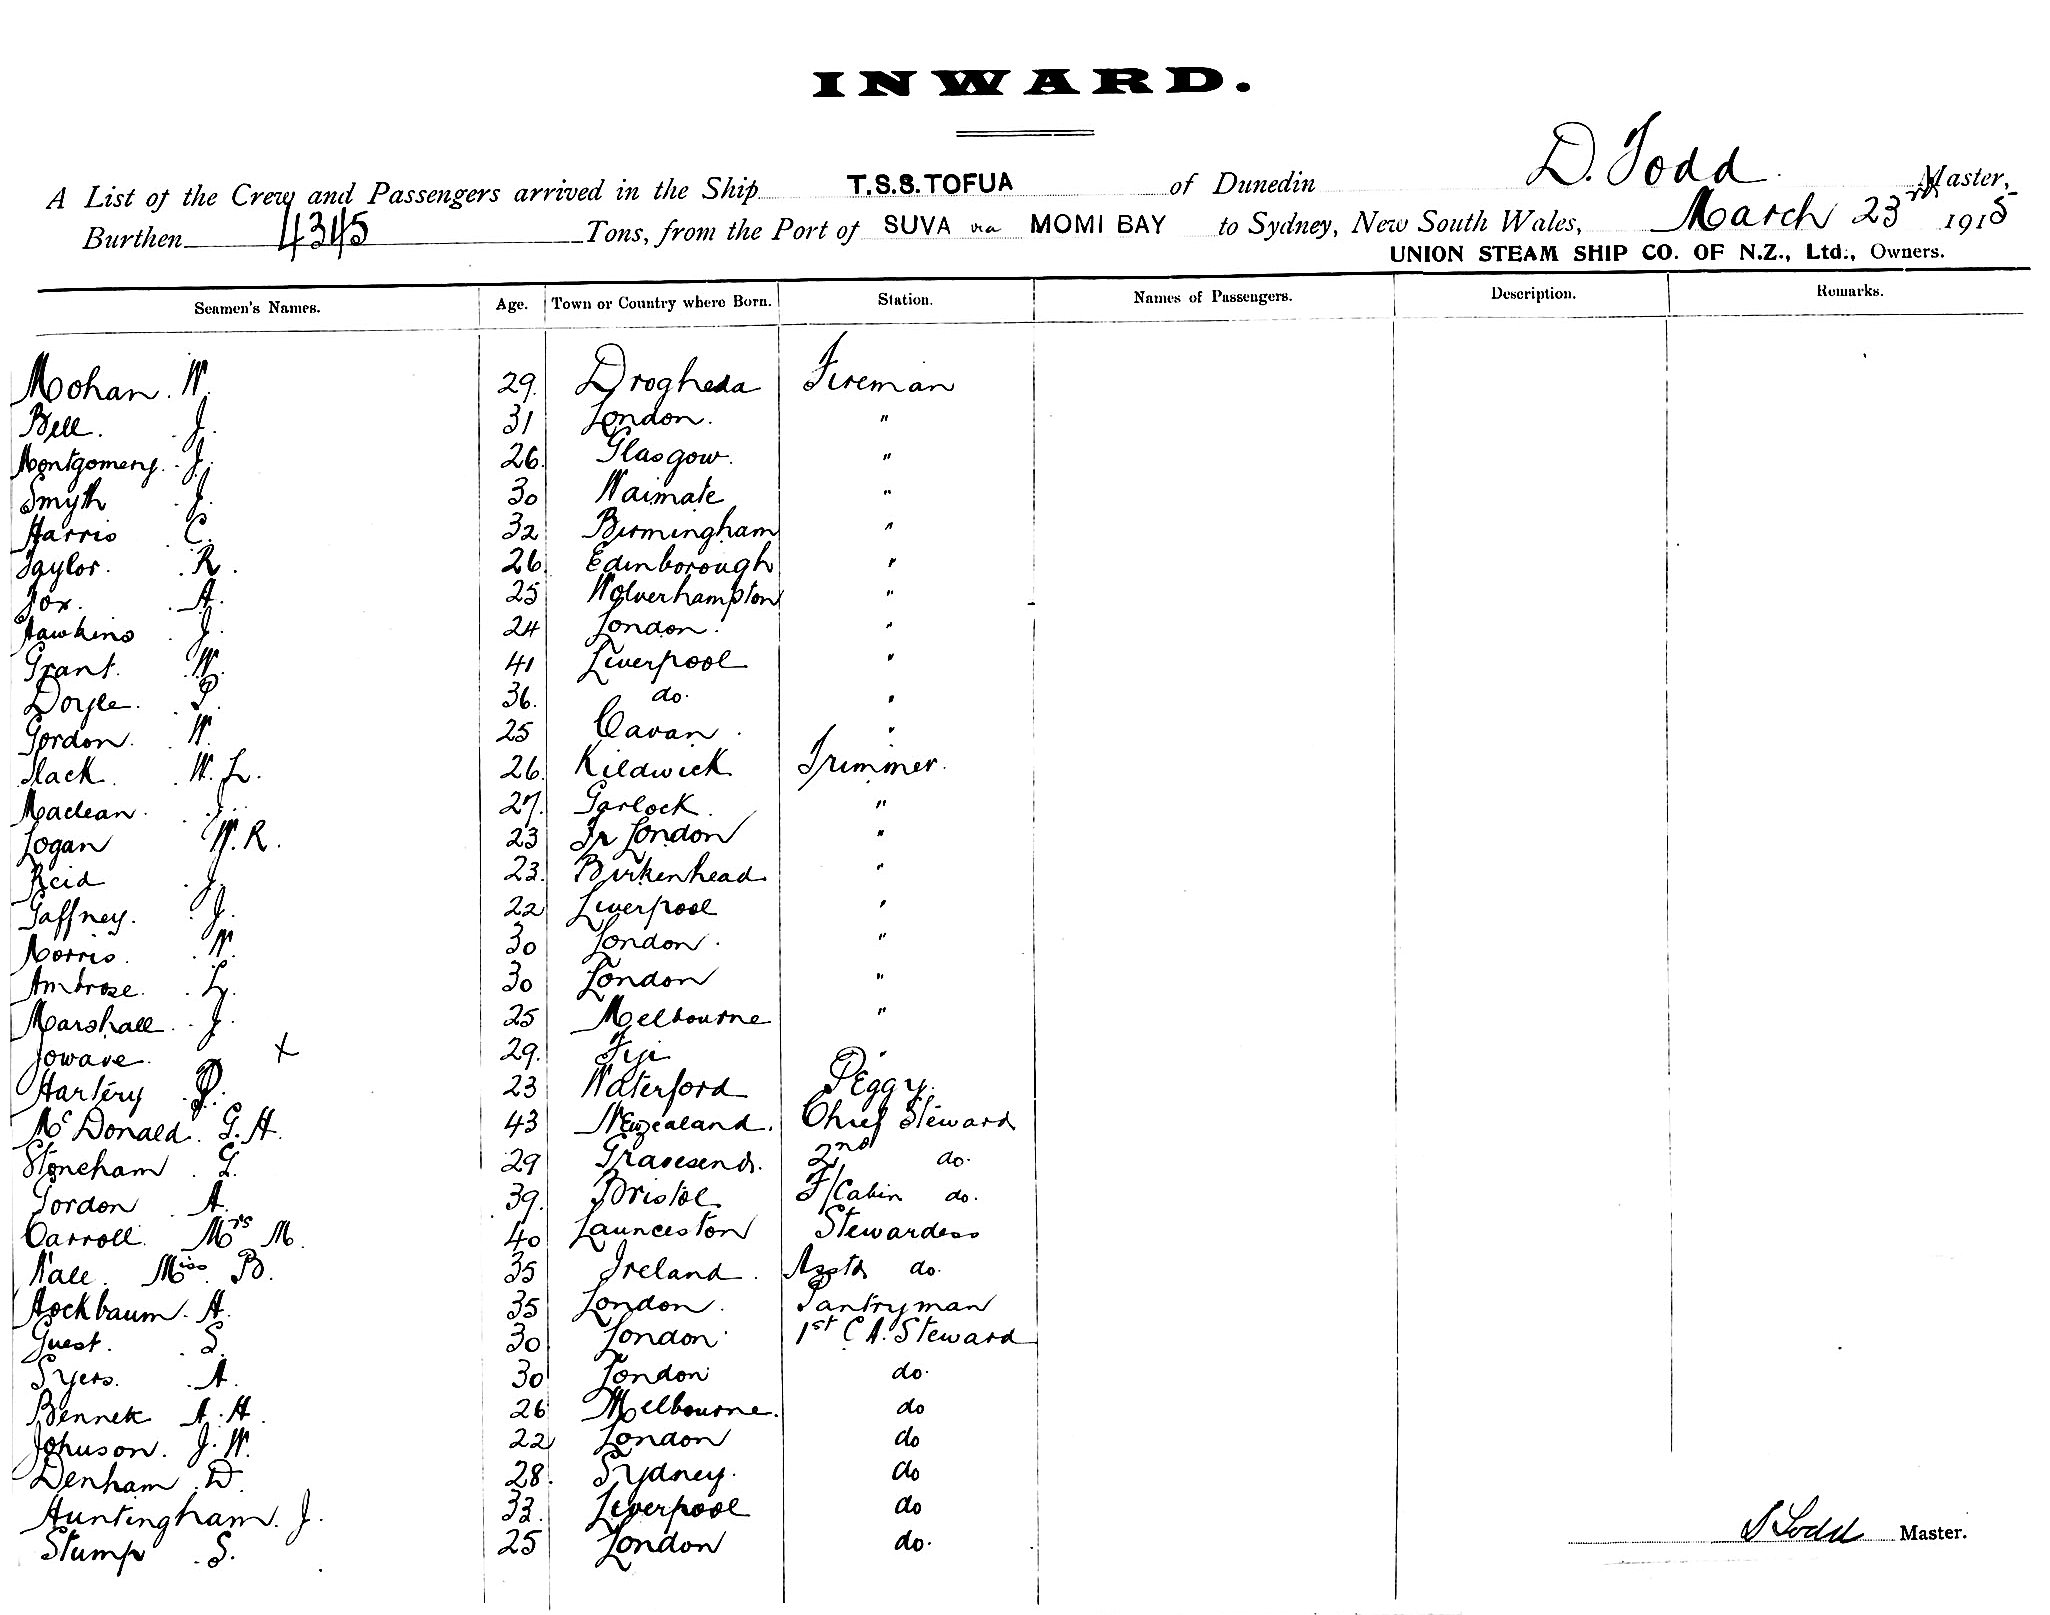 INWARD.
A List of the Crew and Passengers arrived in the Ship T.S.S. TOFUA of Dunedin D. Todd Master,
Burthen 4345 Tons, from the Port of SUVA via MOMI BAY to Sydney, New South Wales, March 23rd 1915
UNION STEAM SHIP CO. OF N.Z., Ltd., Owners.
Seamen's Names. Age. Town or Country where Born. Station. Names of Passengers. Description. Remarks.
Mohan. W. 29. Drogheda Fireman
Bell. J. 31 London. "
Montgomery. J. 26. Glasgow. "
Smyth J. 30 Waimate "
Harris C. 32 Birmingham "
Taylor. R. 26. Edinborough "
Fox. A. 25 Wolverhampton "
Hawkins J. 24 London. "
Grant. W. 41 Liverpool "
Doyle. P. 36. do. "
Gordon. W. 25 Cavan. "
Slack. W. L. 26. Kildwick Trimmer.
Maclean. J. 27. Garlock. "
Logan W. R. 23 Jr London "
Reid J. 23. Birkenhead. "
Gaffney. J. 22 Liverpool "
Morris. W. 30 London. "
Ambrose. L. 30 London "
Marshall. J. 25 Melbourne "
Jowave. x 29. Fiji "
Hartery P. 23 Waterford Peggy.
McDonald. G. H. 43 New Zealand. Chief Steward
Stoneham G. 29 Gravesend. 2nd do.
Gordon A. 39. Bristol F/Cabin do.
Carroll. Mrs M. 40 Launceston Stewardess
Nall. Miss. B. 35 Ireland. Asst do.
Hockbaum. H. 35 London. Pantryman
Guest. S. 30 London. 1st C. A. Steward
Syers. A. 30 London do.
Bennett A. H. 26 Melbourne. do
Johnson. J. W. 22 London do
Denham D. 28. Sydney. do
Huntingham. J. 33. Liverpool do
Stump S. 25 London do.
D Todd Master.